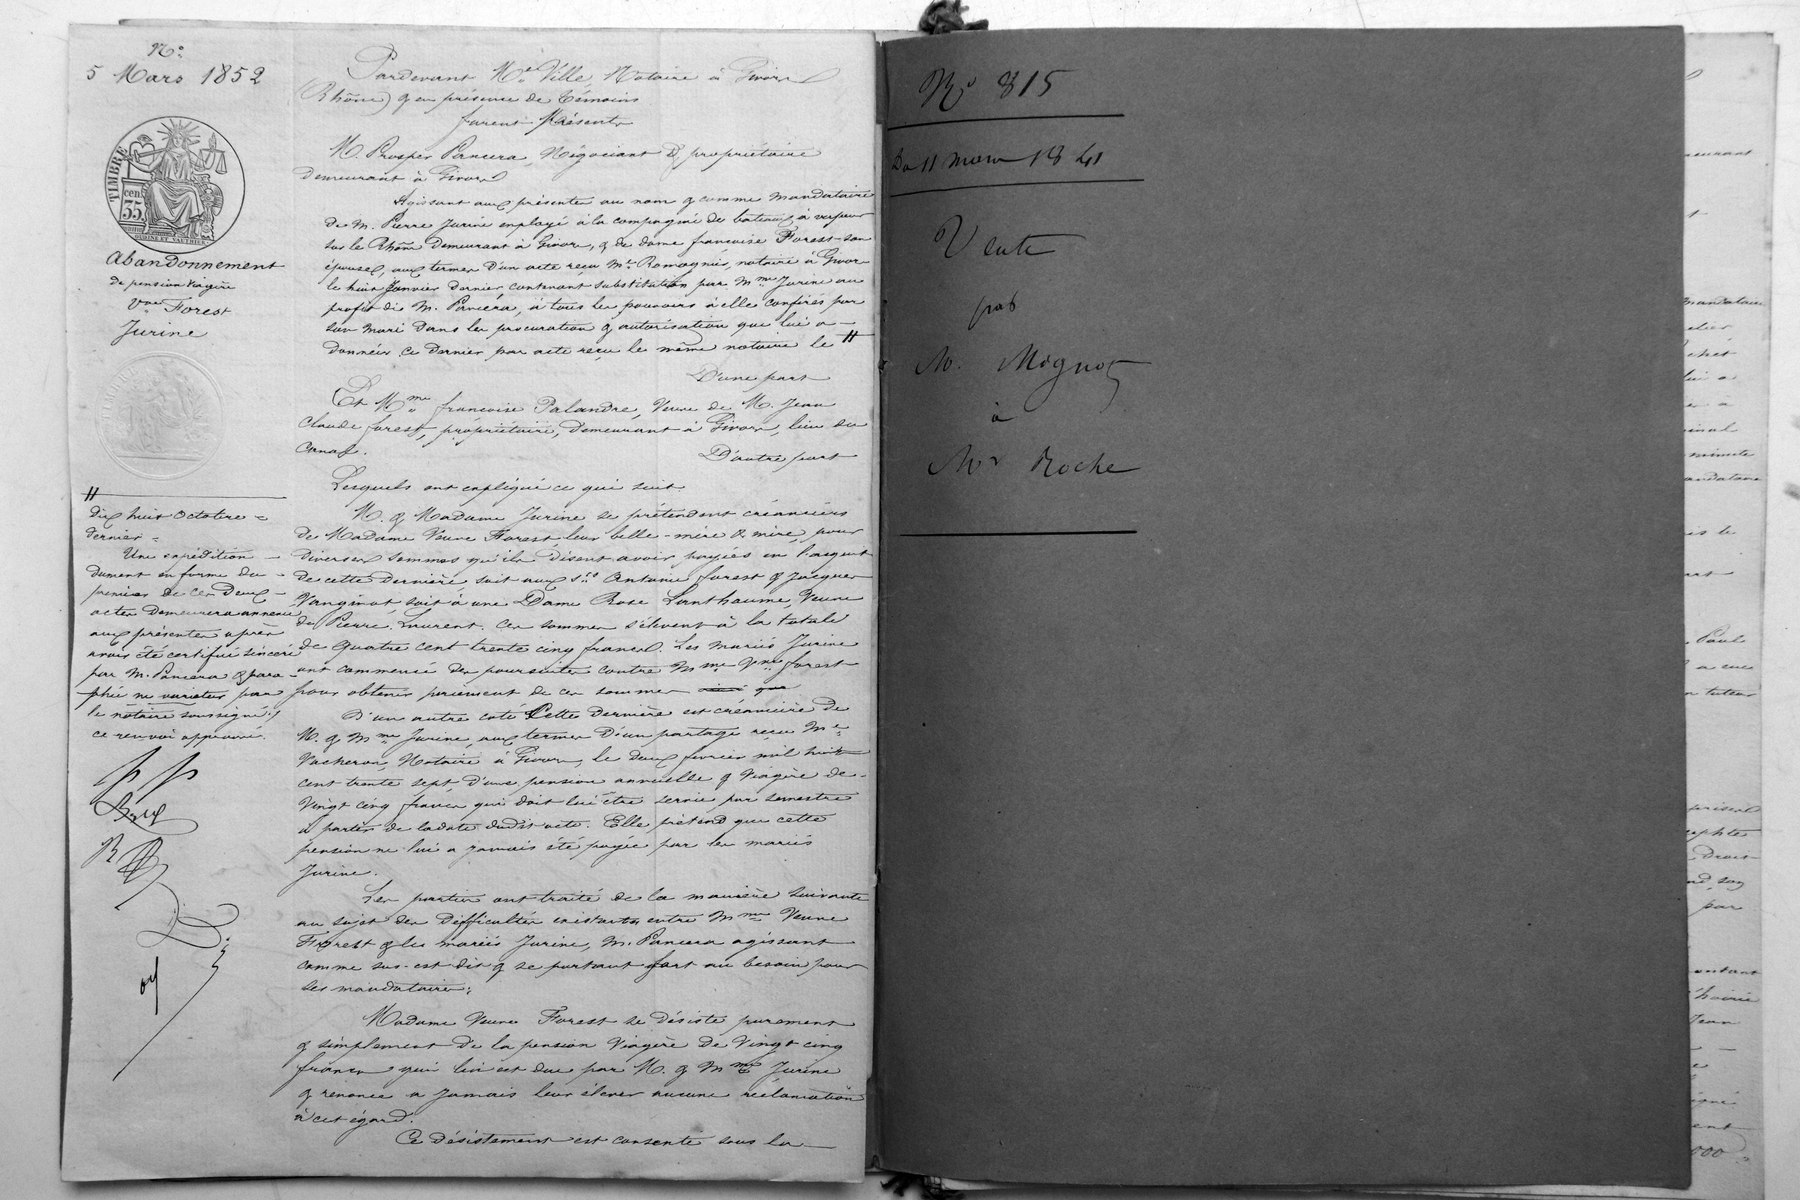 N.°
5 Mars 1852
TIMBRE
cen
35.
Abandonnement
de pension Viagère
Vve Forest
Jurine
Pardevant Me Ville, Notaire à Givors
(Rhône) & en présence de témoins
furent Présents
M. Prosper Pancera, Négociant & propriétaire
demeurant à Givors
Agissant aux présentes au nom & comme mandataire
de M. Pierre Jurine employé à la compagnie de bateaux à vapeur
sur le Rhône demeurant à Givors, & de dame françoise Forest son
épouse, aux termes d'un acte reçu Me Romagnie, notaire à Givors
le huit Janvier dernier contenant substitution par Mme Jurine au
profit de M. Pancera, à tous les pouvoirs à elle conférés par
son mari dans la procuration & autorisation que lui a
données ce dernier par acte reçu le même notaire le //
D'une part
Et Mme françoise Palandre, Veuve de M. Jean
Claude forest, propriétaire, demeurant à Givors, lieu du
canal.
D'autre part
Lesquels ont expliqué ce qui suit
M. & Madame Jurine se prétendent créanciers
de Madame Veuve Forest leur belle-mère & mère, pour
diverses sommes qu'ils disent avoir payées en l'acquit
de cette dernière soit aux srs Antoine forest & Jacques
Vanginot, soit à une Dame Rose Lanthaume, Veuve
de Pierre Laurent. Ces sommes s'élèvent à la totale
de quatre cent trente cinq francs. Les mariés Jurine
ont commencé des poursuites contre Mme Vve forest
pour obtenir paiement de ces sommes
D'un autre coté Cette dernière est créancière de
M. & Mme Jurine, aux termes d'un partage reçu Me
Vacheron, Notaire à Givors, le deux fevrier mil huit
cent trente sept, d'une pension annuelle & Viagère de
Vingt cinq francs qui doit lui être servie par semestre
à partir de la date dudit acte. Elle prétend que cette
pension ne lui a jamais été payée par les mariés
Jurine.
Les parties ont traité de la manière suivante
au sujet des Difficultés existantes entre Mme Veuve
Forest & les mariés Jurine, M. Pancera agissant
comme sus-est dit & se portant fort au besoin pour
ses mandataires:
Madame Veuve Forest se désiste purement
& simplement de la pension Viagère de Vingt cinq
francs qui lui est due par M. & Mme Jurine
& renonce à jamais leur élever aucune réclamation
à cet égard.
Ce désistement est consenti sous la
//
dix huit Octobre
dernier
Une expédition
dument en forme du
premier de ces deux
actes demeurera annexée
aux présentes après
avoir été certifié sincère
par M. Pancera & para-
phée ne varietur par
le notaire soussigné.
ce renvoi approuvé.
N° 815
Du 11 mars 1841
Vente
par
M. Mognot
à
Mr Roche